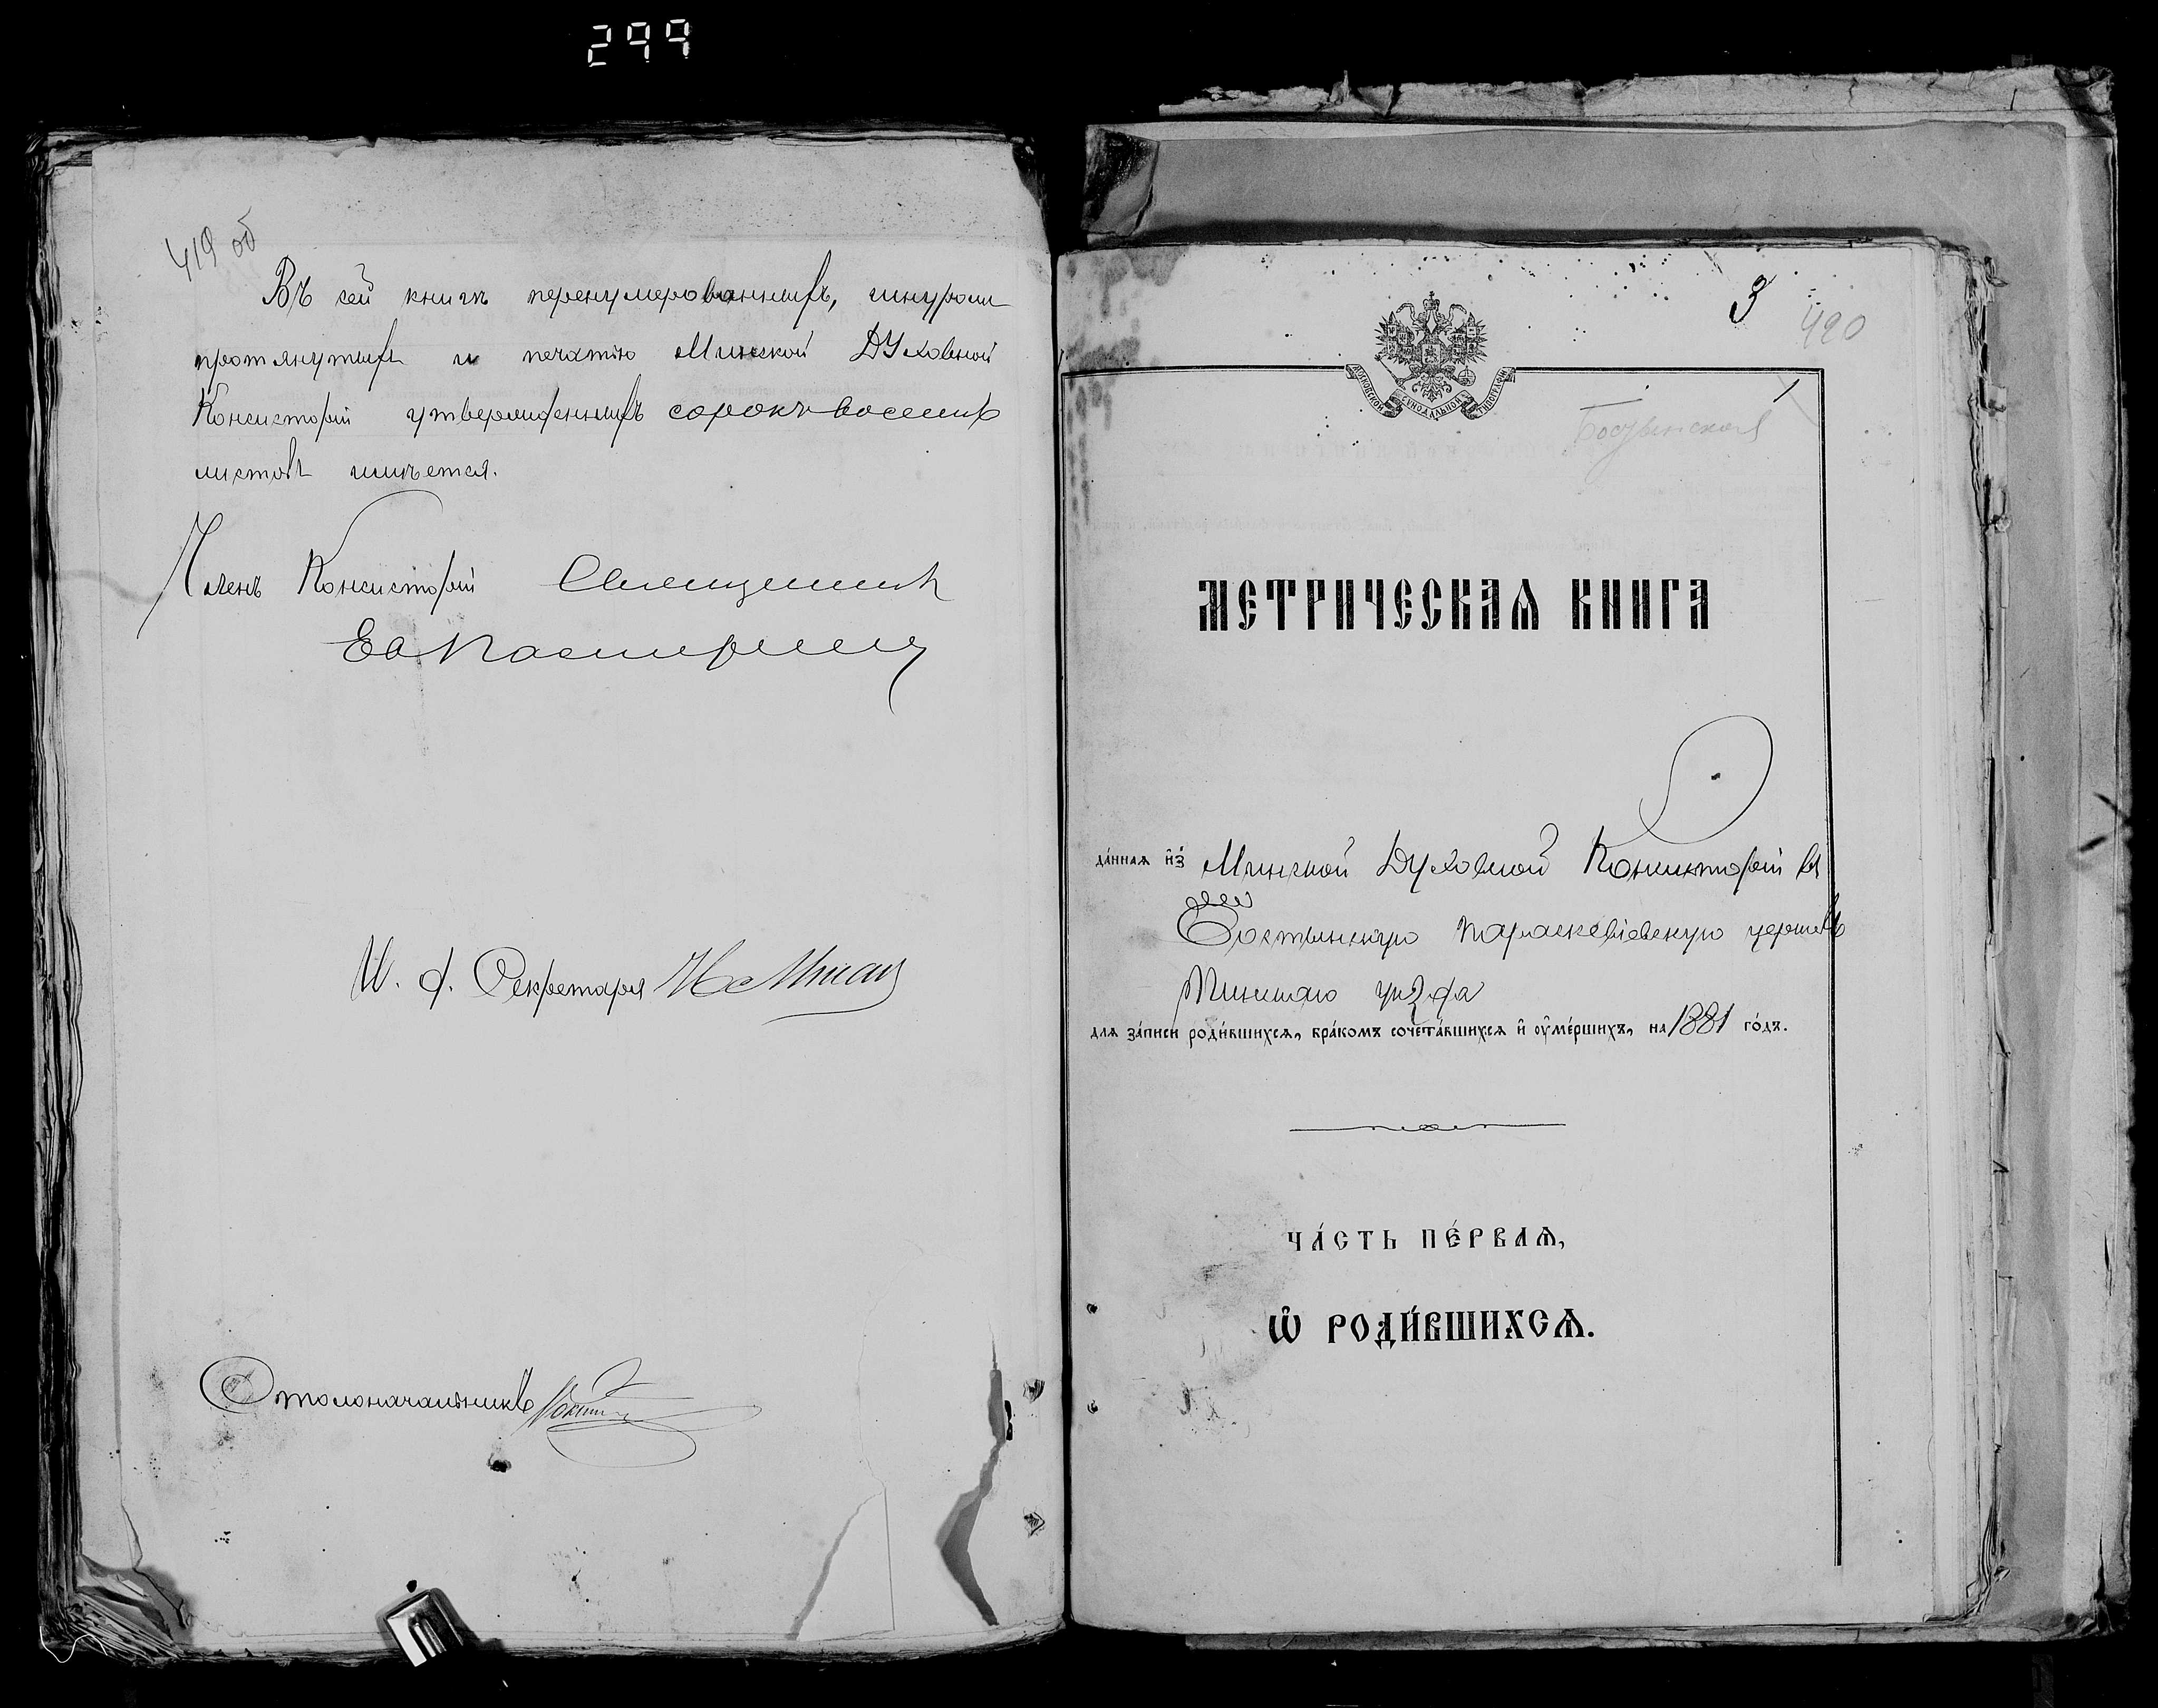 299
419 об
Въ сей книгѣ перенумерованныхъ, шнуромъ
протянутыхъ и печатію Минской Духовной
Консисторіи утвержденныхъ сорокъ восемь
листовъ имѣется.
Членъ Консисторіи Священникъ
И. д. Секретаря
Столоначальникъ
3
420
МОСКОВСКОЙ СѴНОДАЛЬНОЙ ТИПОГРАФІИ
МЕТРИЧЕСКАѦ КНИГА
да́нная и҆з̾ Минской Духовной Консисторіи въ
Параскевіевскую церковь
Минскаго уѣзда
для за́писи роди́вшихсѧ, бра́комъ сочета́вшихсѧ и҆ ѹ҆ме́ршихъ, на 1881 го́дъ.
ЧА́СТЬ ПЕ́РВАѦ,
Ѽ РОДИ́ВШИХСѦ.